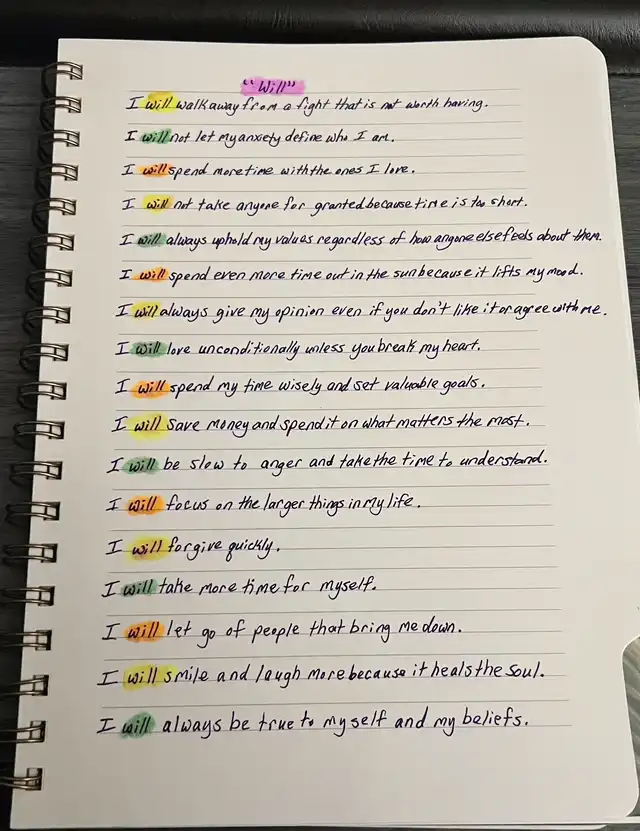 "Will"
I will walk away from a fight that is not worth having.
I will not let my anxiety define who I am.
I will spend more time with the ones I love.
I will not take anyone for granted because time is too short.
I will always uphold my values regardless of how anyone else feels about them.
I will spend even more time out in the sun because it lifts my mood.
I will always give my opinion even if you don't like it or agree with me.
I will love unconditionally unless you break my heart.
I will spend my time wisely and set valuable goals.
I will save money and spend it on what matters the most.
I will be slow to anger and take the time to understand.
I will focus on the larger things in my life.
I will forgive quickly.
I will take more time for myself.
I will let go of people that bring me down.
I will smile and laugh more because it heals the soul.
I will always be true to myself and my beliefs.